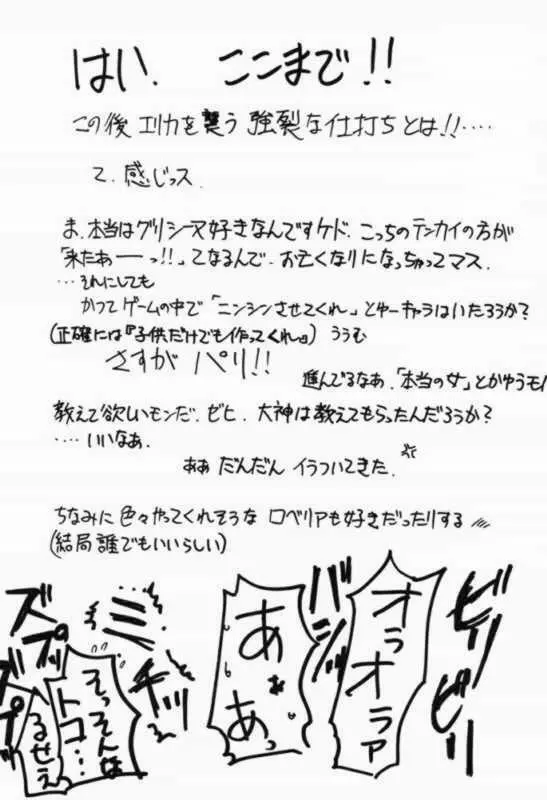 はい、ここまで!!
この後エリカを襲う強裂な仕打ちとは!!‥‥
て、感じっス.
ま、本当はグリシーヌ好きなんですケド、こっちのテンカイの方が
「来たあーーっ!!」てなるんで、お亡くなりになっちゃってマス.
…それにしても
かつてゲームの中で「ニンシンさせてくれ」とゆーキャラはいたろうか?
(正確には『子供だけでも作ってくれ』) ううむ
さすがパリ!!
進んでるなあ、「本当の女」とかゆうモノ
教えて欲しいモンだ、ゼヒ、大神は教えてもらったんだろうか?
‥‥いいなぁ.
ああ だんだんイラついてきた.
ちなみに色々やってくれそうなロベリアも好きだったりする
(結局誰でもいいらしい)
ビリ
ビリ
オラオラァ
バシ
あぁあっ
ズプッ
ズプッ
そっそんな
トコ…
るせえ